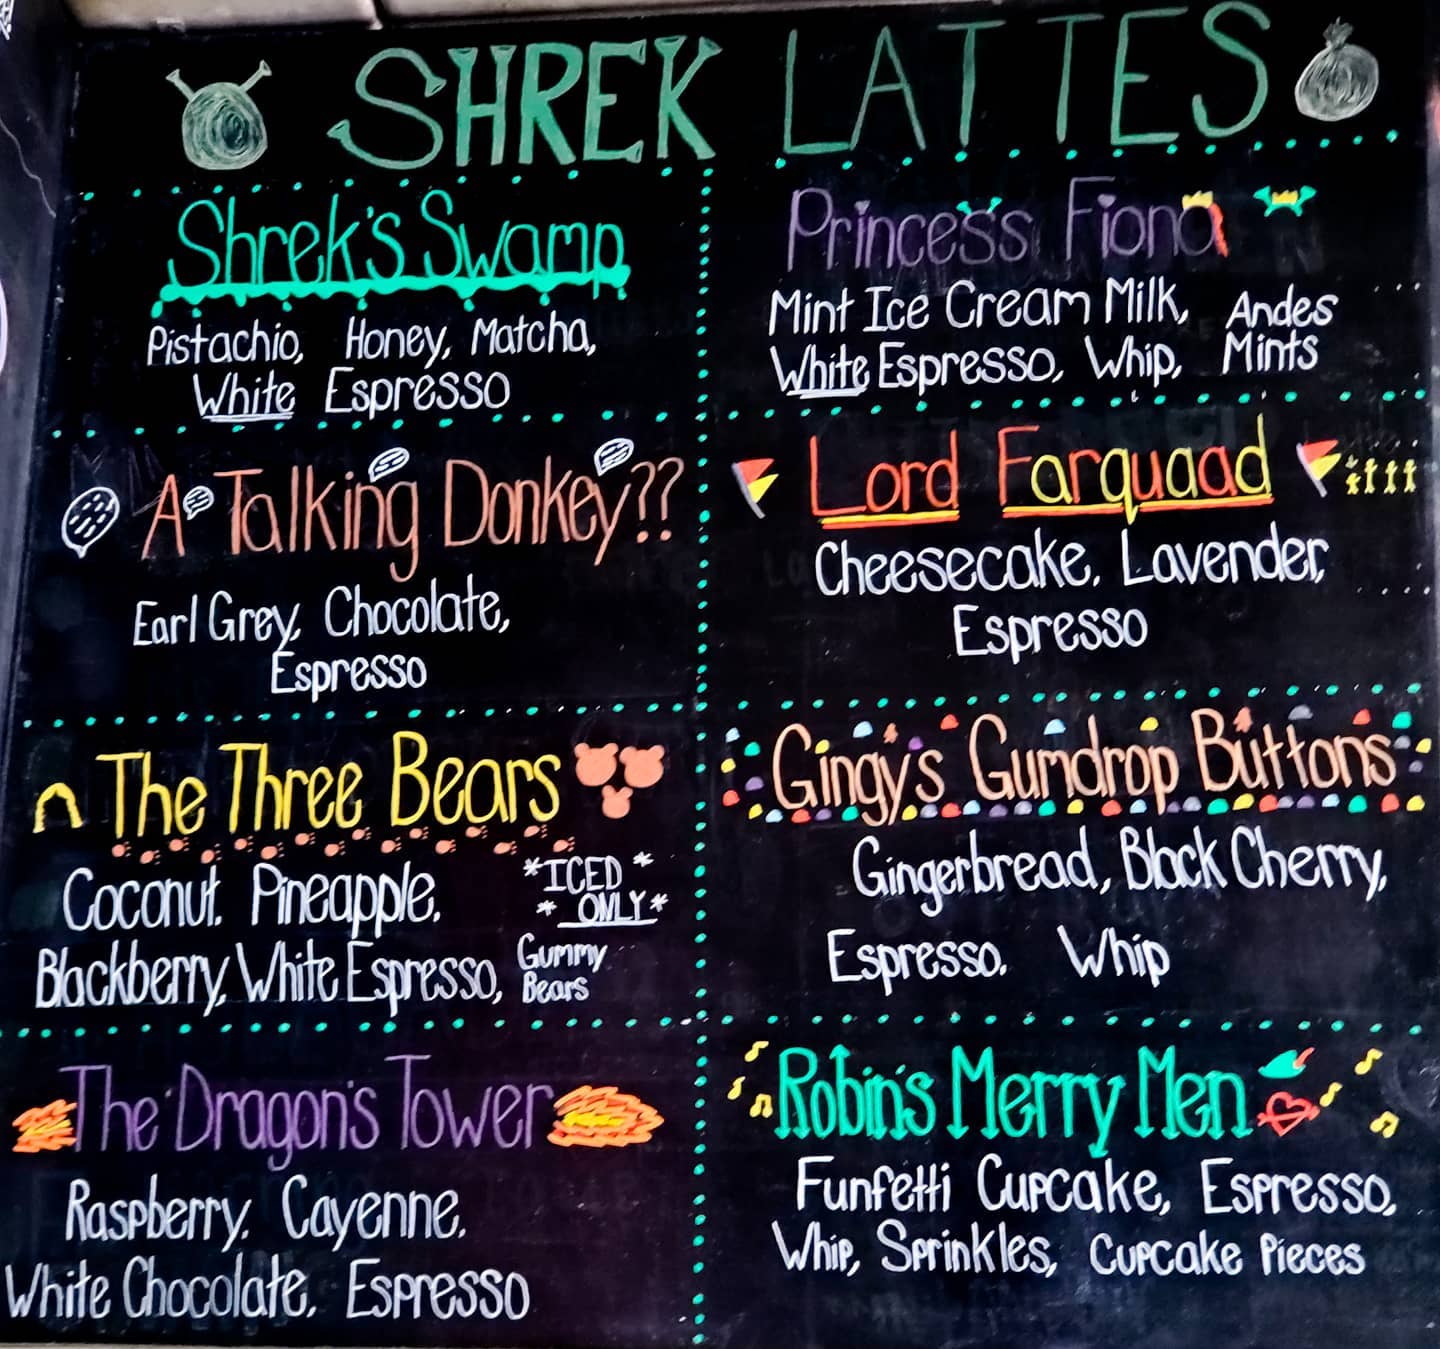 SHREK LATTES
Shrek's Swamp
Pistachio, Honey, Matcha,
White Espresso
A Talking Donkey??
Earl Grey, Chocolate,
Espresso
The Three Bears
Coconut, Pineapple,
Blackberry, White Espresso,
*ICED*
*ONLY*
Gummy
Bears
The Dragon's Tower
Raspberry, Cayenne,
White Chocolate, Espresso
Princess Fiona
Mint Ice Cream Milk, Andes
White Espresso, Whip, Mints
Lord Farquaad
Cheesecake, Lavender,
Espresso
Gingy's Gumdrop Buttons
Gingerbread, Black Cherry,
Espresso, Whip
Robin's Merry Men
Funfetti Cupcake, Espresso,
Whip, Sprinkles, Cupcake Pieces